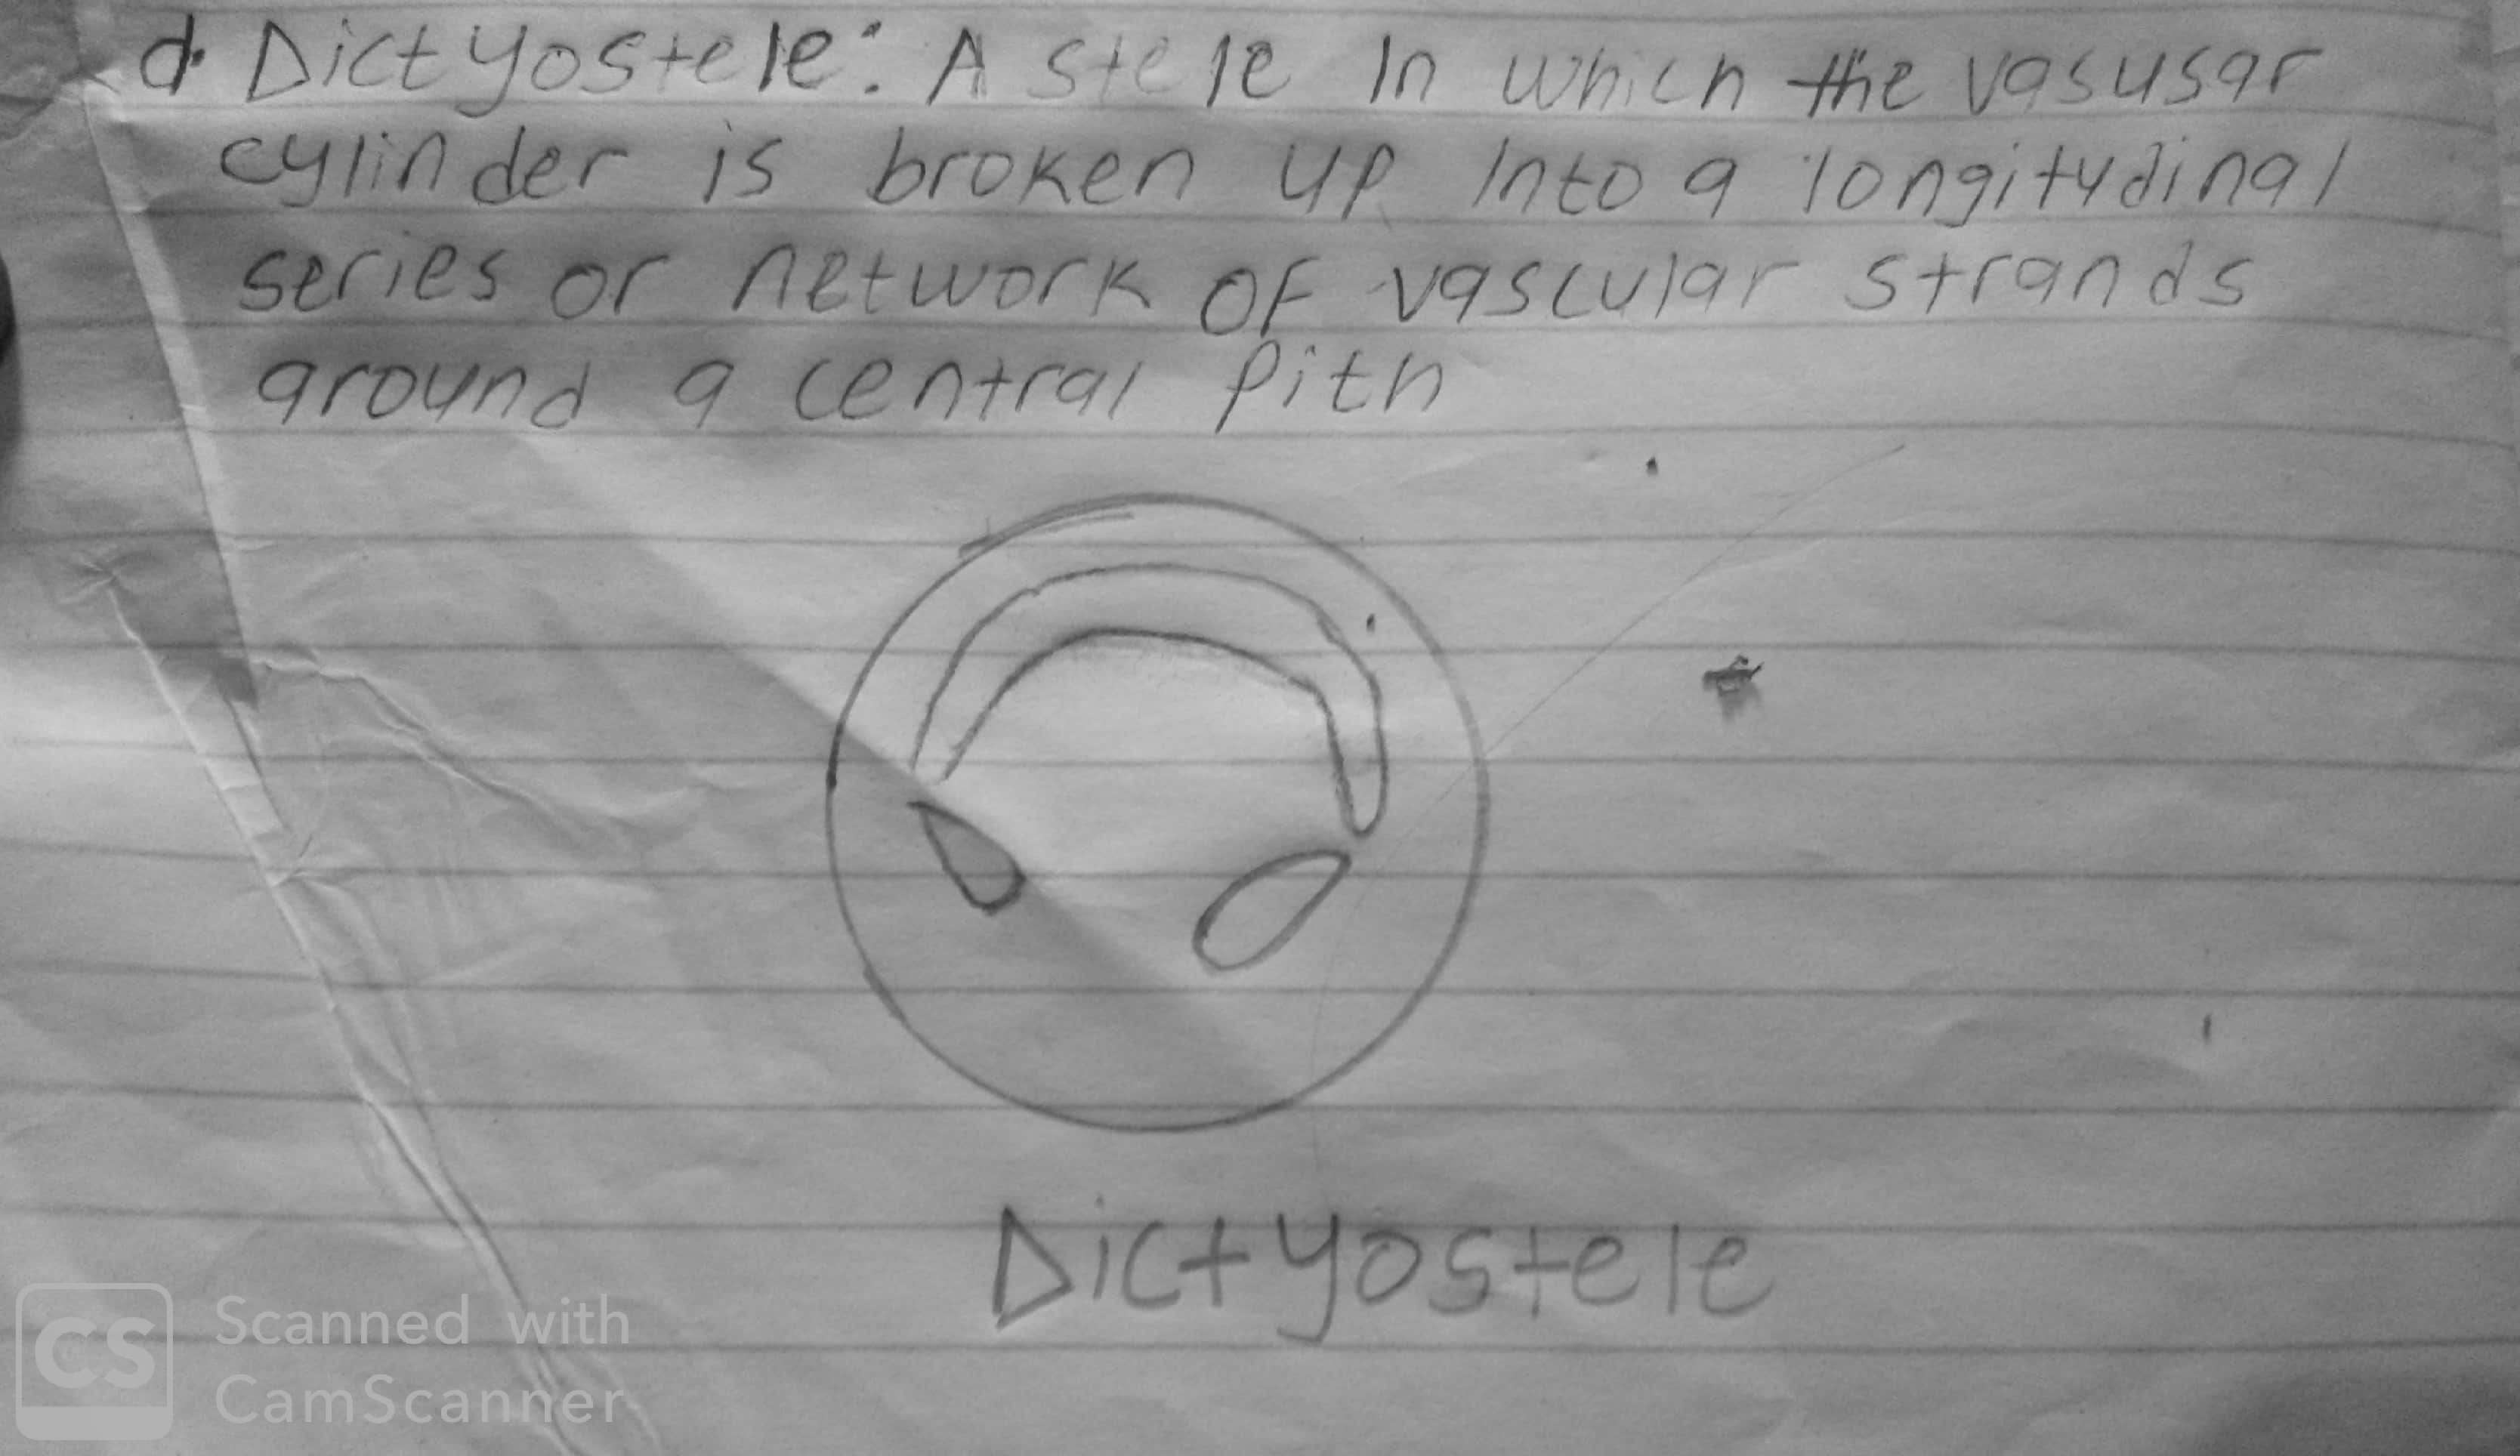 d. Dictyostele: A stele In which the vasusar
cylinder is broken up Into a longitudinal
series or network of vascular strands
around a central pith
Dictyostele
CS
Scanned with
CamScanner